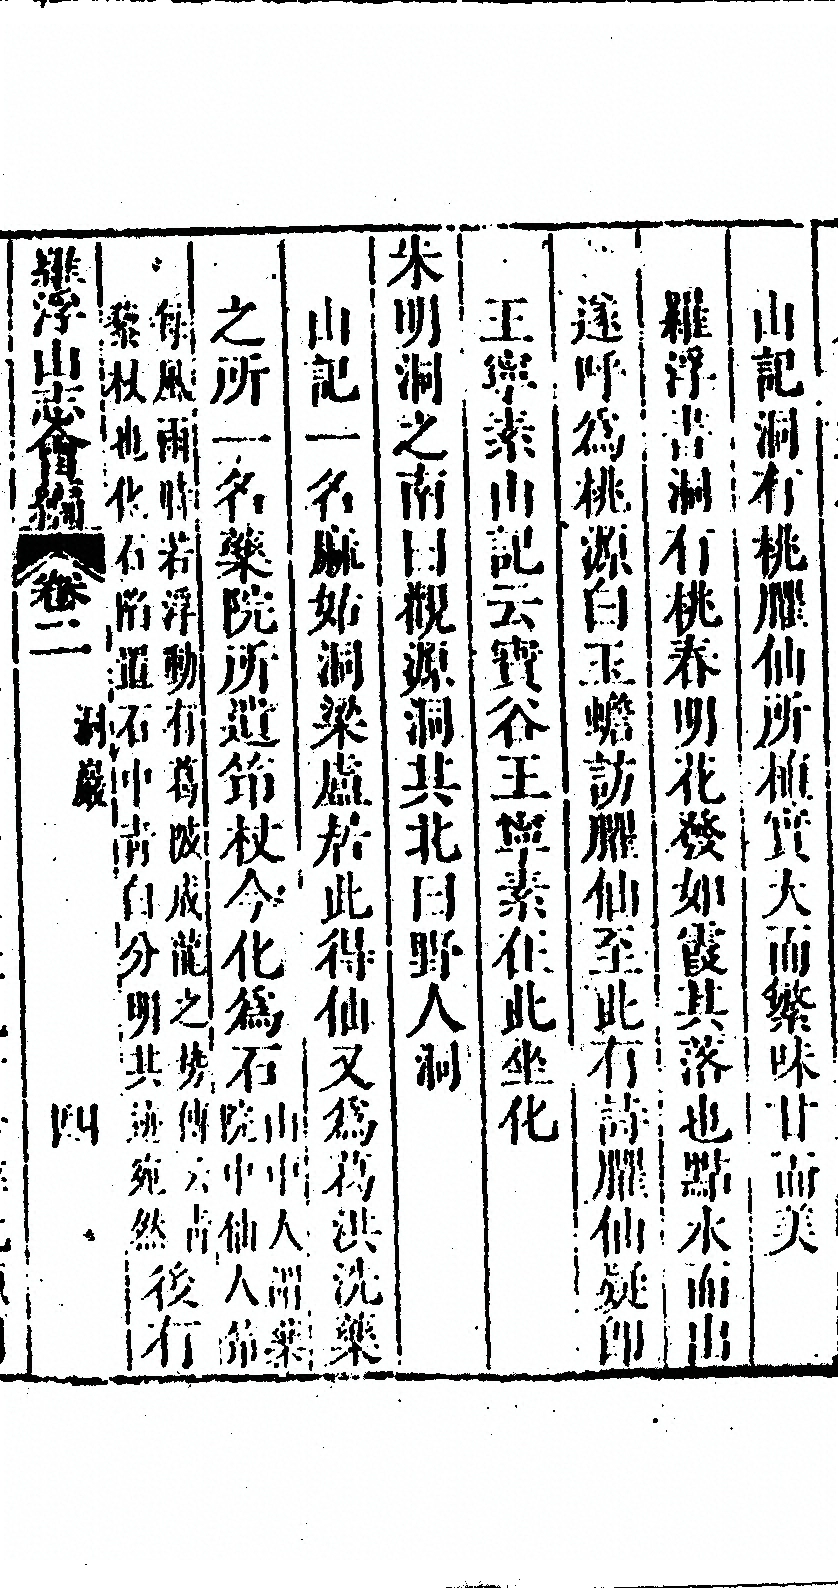 山記洞有桃臞仙所植實大而繁味甘而美
羅浮書洞有桃春明花發如霞其落也點水而出
遂呼為桃源白玉蟾訪臞仙至此有詩臞仙疑即
王寧素山記云寶谷王寧素在此坐化
朱明洞之南曰觀源洞其北曰野人洞
山記一名麻姑洞梁盧居此得仙又為葛洪洗藥
之所一名藥院所遺筇杖今化為石
山中人謂藥
院中仙人筇
每風雨時若浮動有葛陂成龍之勢傳云昔
藜杖也化石陷道石中青白分明其迹宛然
後有
羅浮山志會編 卷二 洞巖 四